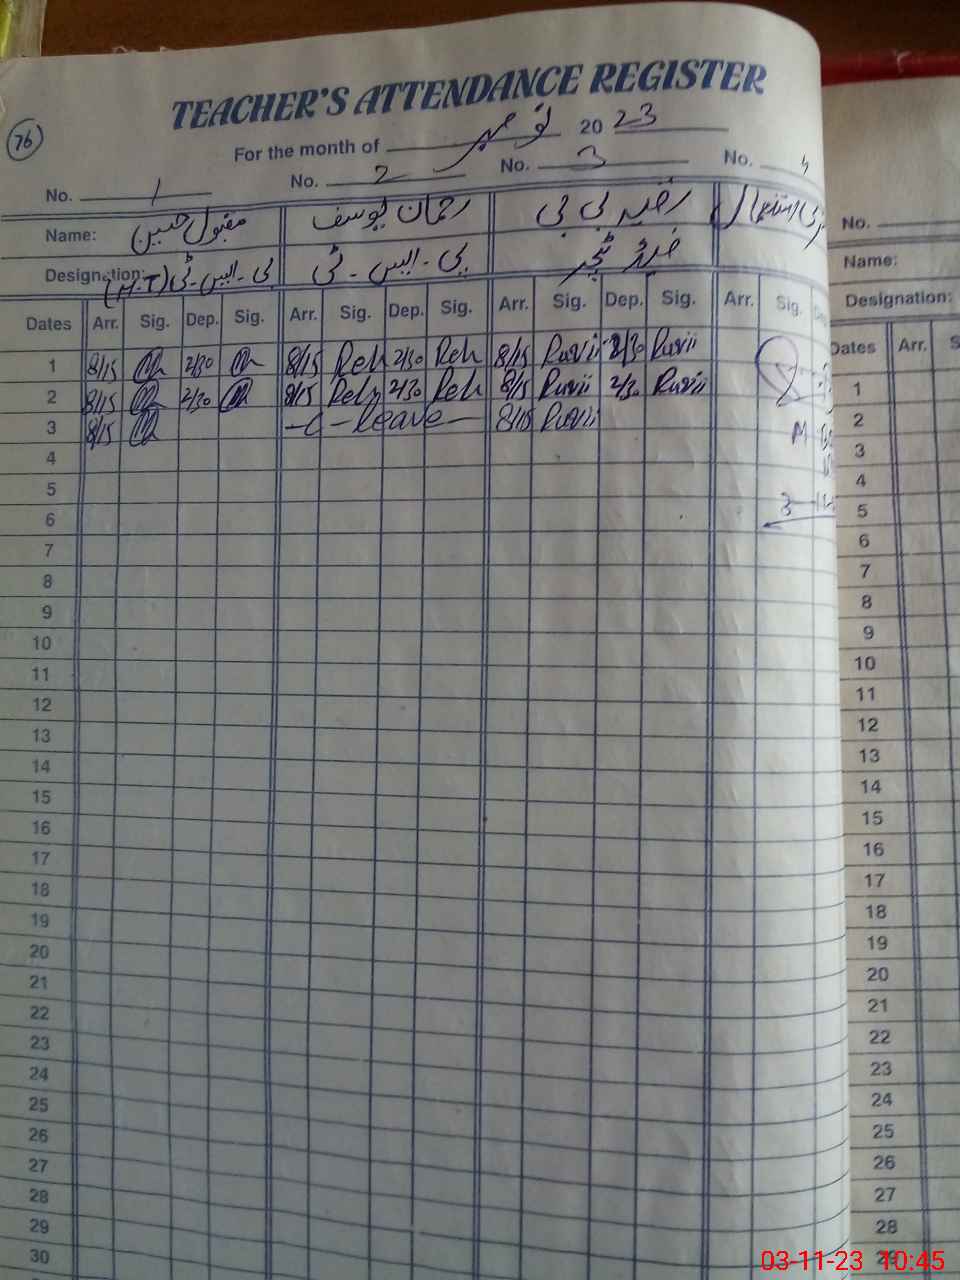 TEACHER'S ATTENDANCE REGISTER
76
For the month of نومبر 2023
No. 1 No. 2 No. 3 No. 4
Name: مقبول حسین رحمان یوسف بی بی
Designation: بی-ایس-ٹی بی-ایس-ٹی ٹیچر
Dates Arr. Sig. Dep. Sig. Arr. Sig. Dep. Sig. Arr. Sig. Dep. Sig. Arr. Sig.
1 8/15 2/30 8/15 Reh 2/30 Reh 8/15 2/30
2 8/15 2/30 8/15 Reh 2/30 Reh 8/15 2/30
3 8/15 -C-Leave- 8/15
4
5
6
7
8
9
10
11
12
13
14
15
16
17
18
19
20
21
22
23
24
25
26
27
28
29
30
No.
Name:
Designation:
Dates Arr. S
1
2
3
4
5
6
7
8
9
10
11
12
13
14
15
16
17
18
19
20
21
22
23
24
25
26
27
28
29
03-11-23 10:45